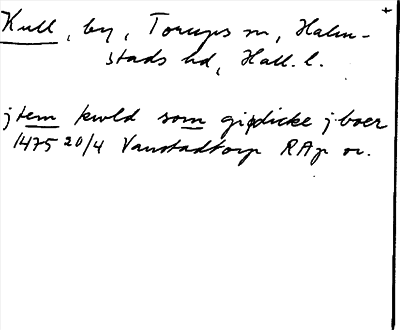 Kull, by, Torups sn, Halm-
stads hd, Hall. l.
jtem kwld som giødicke j boer
1475 20/4 Vanstadtorp RAp or.